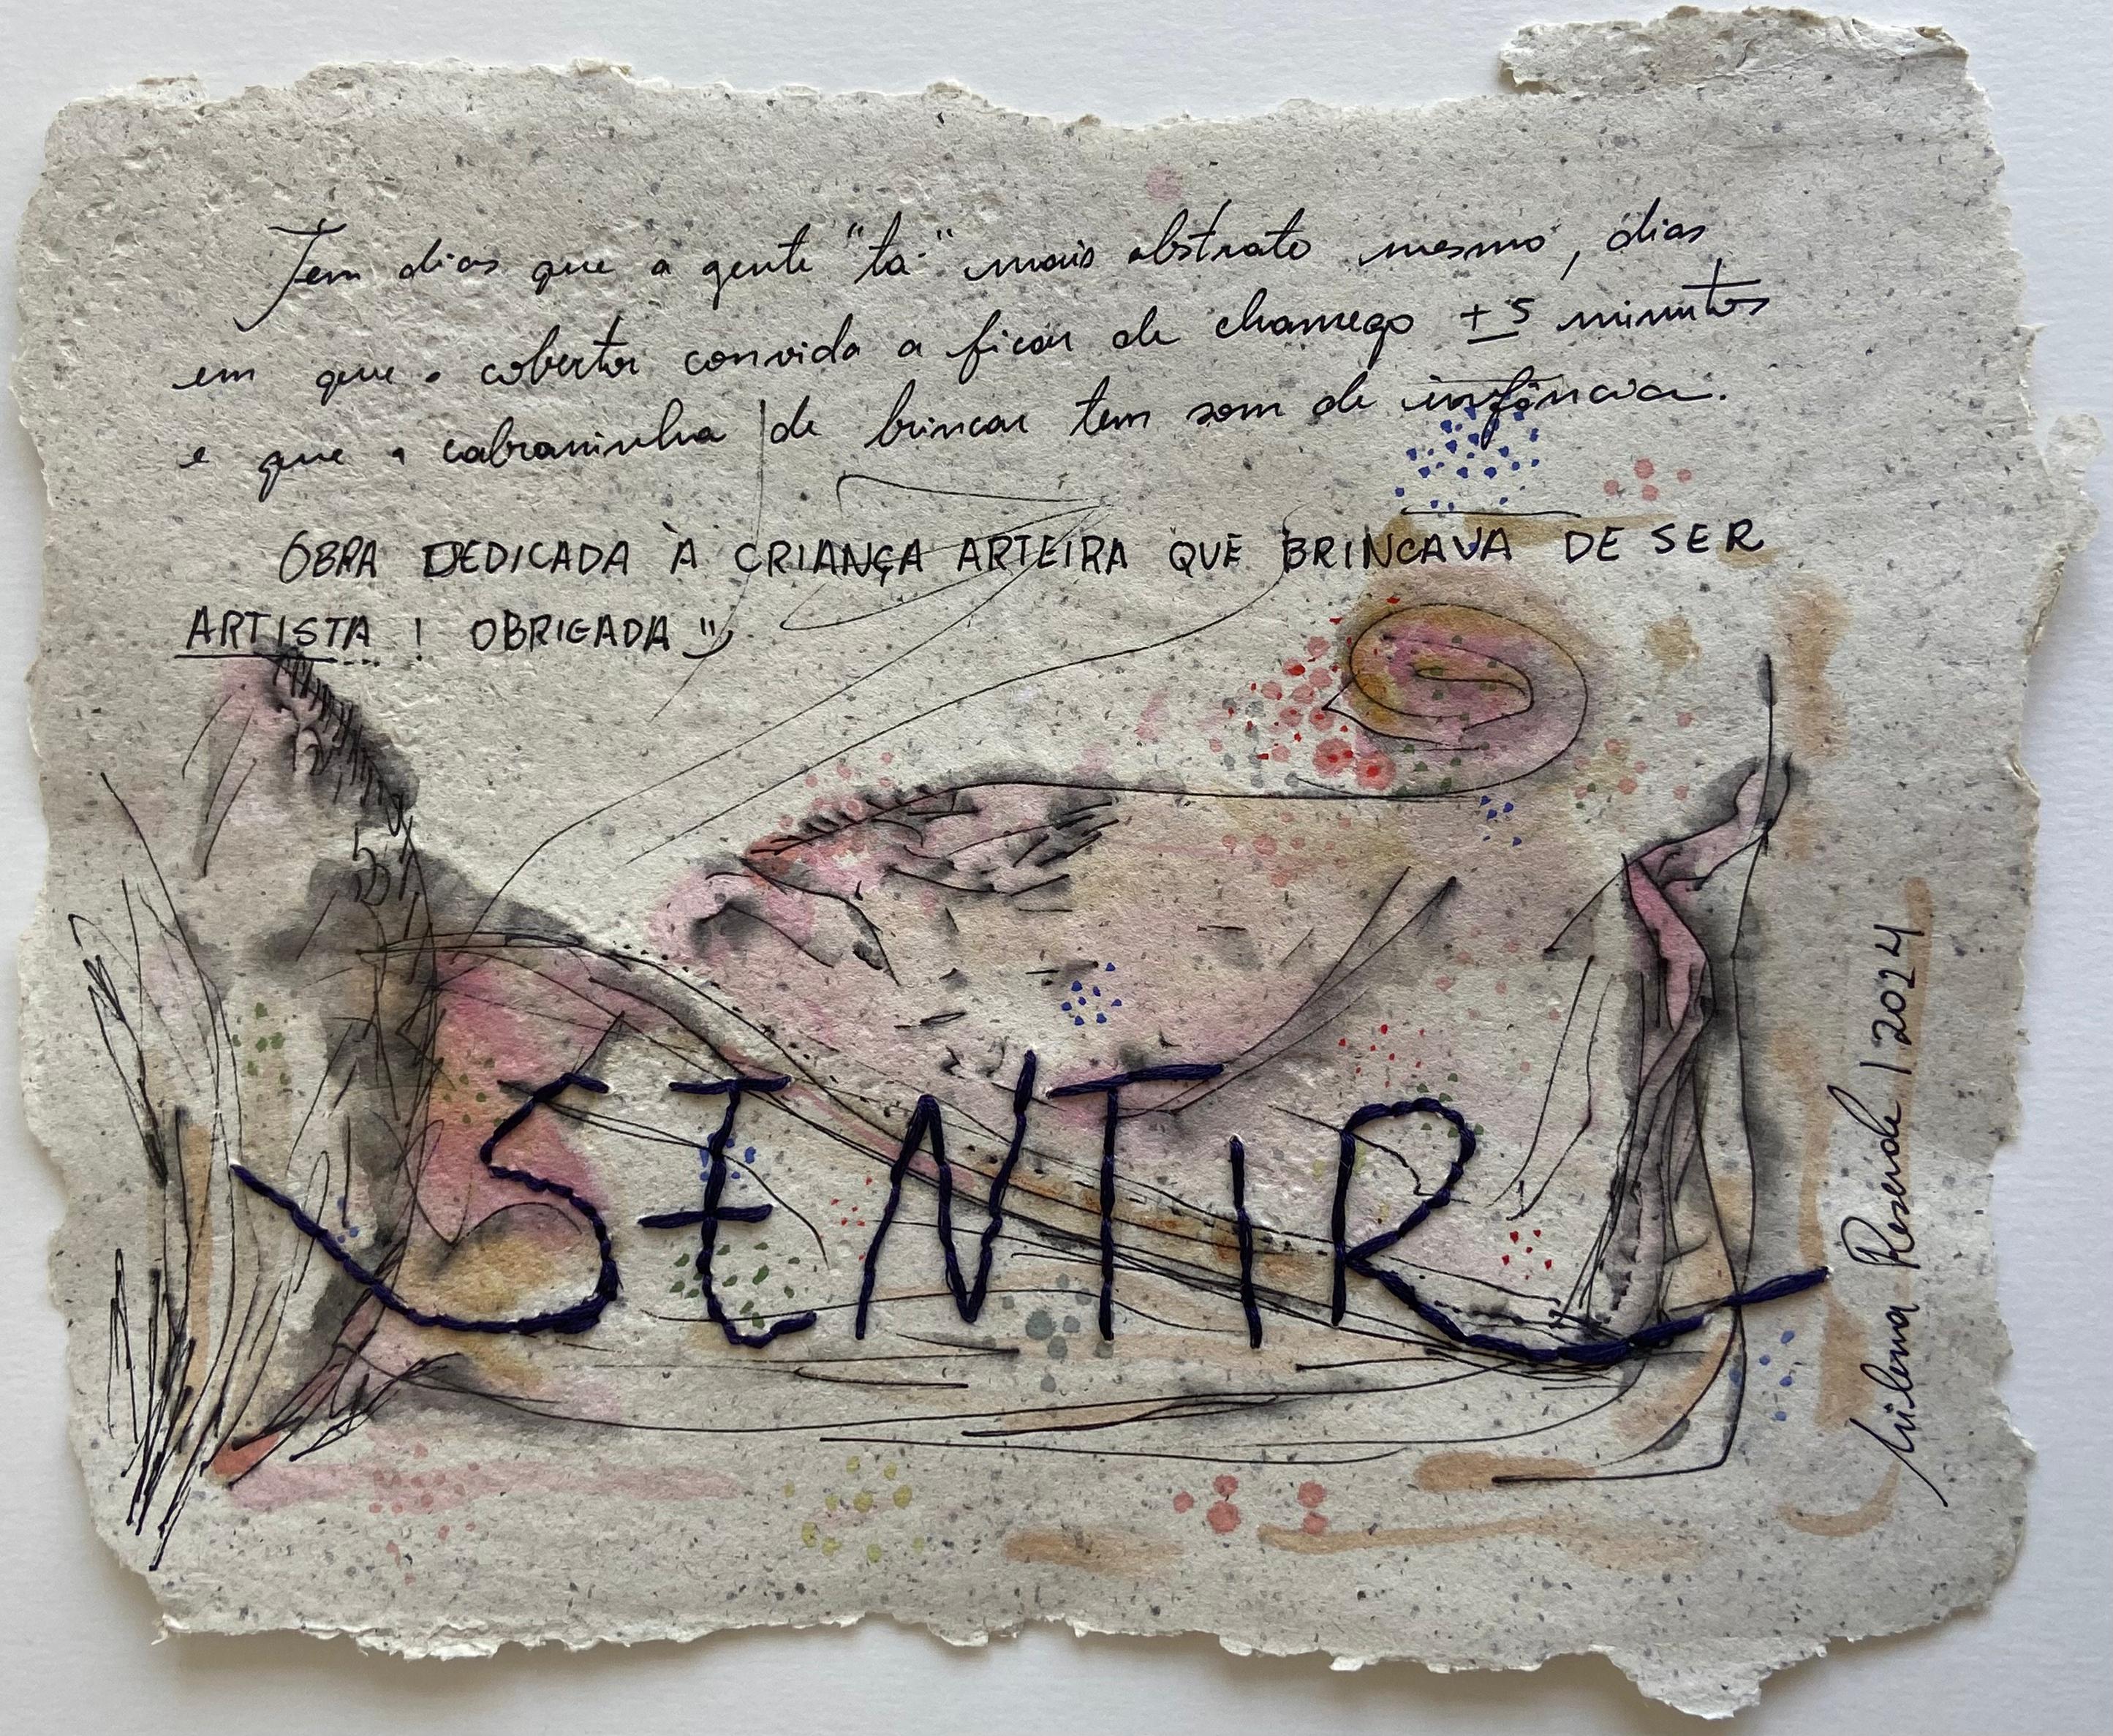 Tem dias que a gente "tá" mais abstrato mesmo, dias
em que o cobertor convida a ficar de chamego ± 5 minutos
e que a cabaninha de brincar tem som de infância.
OBRA DEDICADA À CRIANÇA ARTEIRA QUE BRINCAVA DE SER
ARTISTA! OBRIGADA =)
SENTIR
Milena Resende | 2024